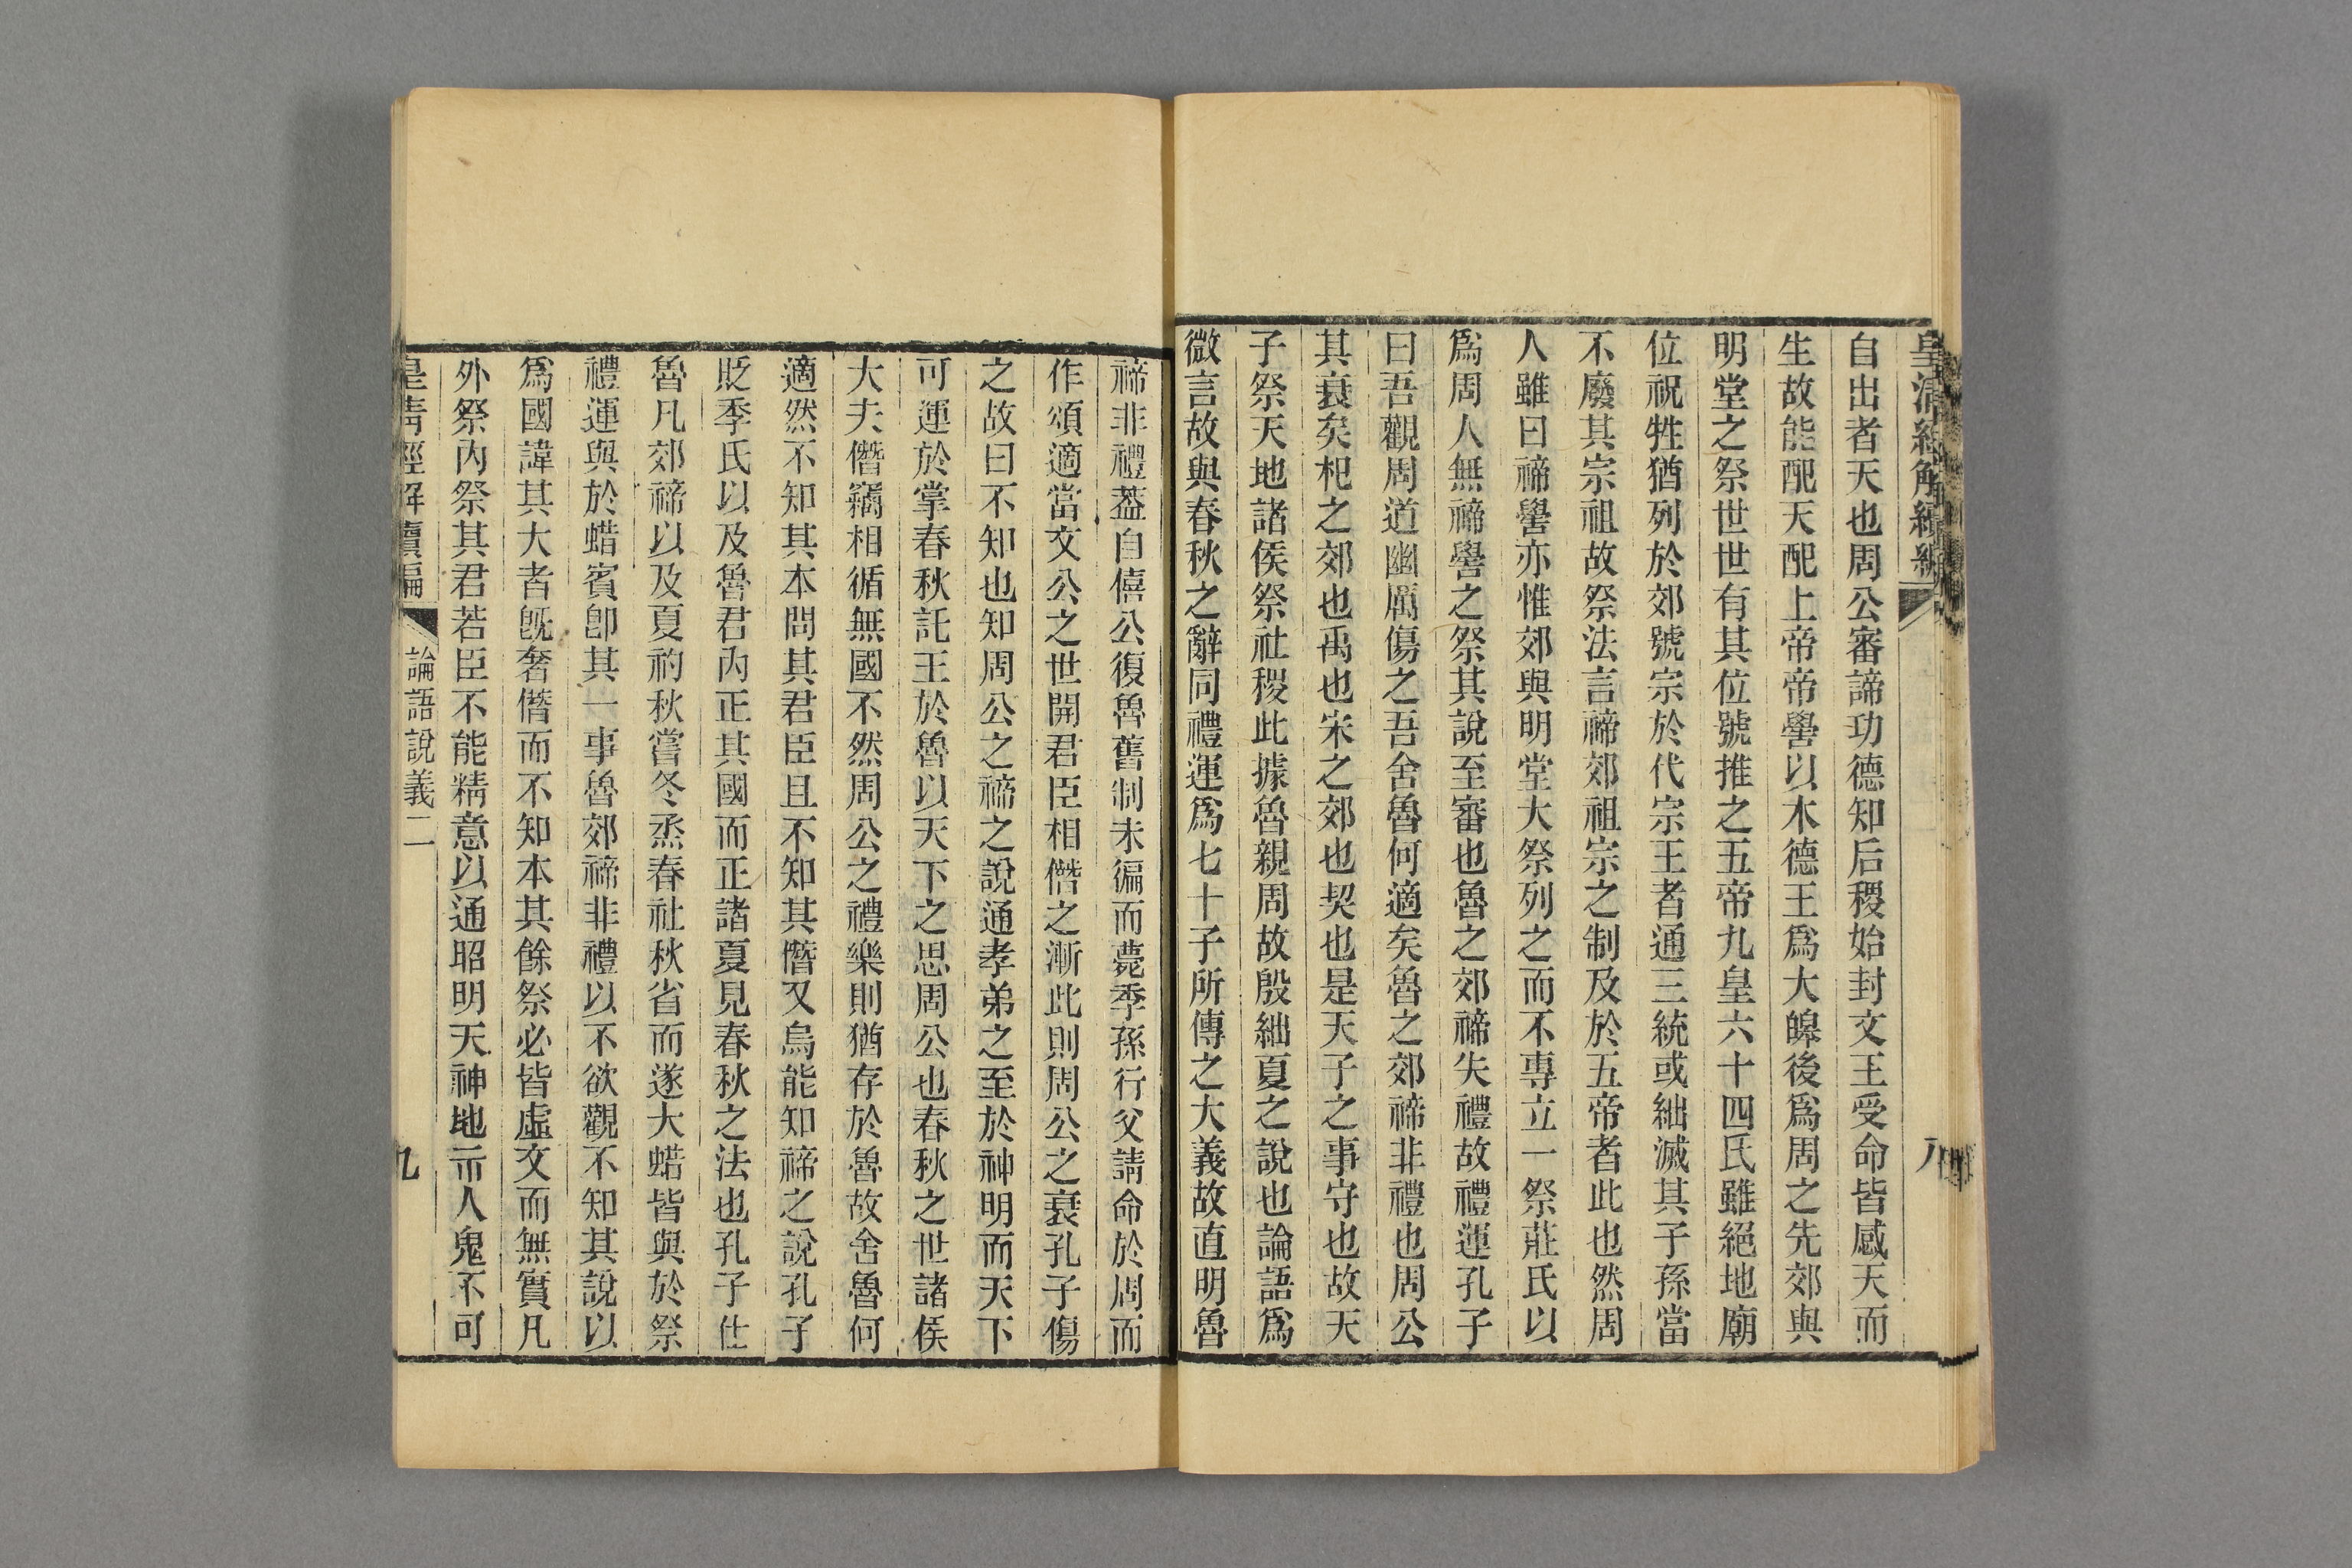 皇清經解續編
八
自出者天也周公審諦功德知后稷始封文王受命皆感天而
生故能配天配上帝帝嚳以木德王爲大皞後爲周之先郊與
明堂之祭世世有其位號推之五帝九皇六十四氏雖絕地廟
位祝牲猶列於郊號宗於代宗王者通三統或絀滅其子孫當
不廢其宗祖故祭法言禘郊祖宗之制及於五帝者此也然周
人雖曰禘嚳亦惟郊與明堂大祭列之而不專立一祭莊氏以
爲周人無禘嚳之祭其說至審也魯之郊禘失禮故禮運孔子
曰吾觀周道幽厲傷之吾舍魯何適矣魯之郊禘非禮也周公
其衰矣杞之郊也禹也宋之郊也契也是天子之事守也故天
子祭天地諸侯祭社稷此據魯親周故殷絀夏之說也論語爲
微言故與春秋之辭同禮運爲七十子所傳之大義故直明魯
禘非禮葢自僖公復魯舊制未徧而薨季孫行父請命於周而
作頌適當文公之世開君臣相僭之漸此則周公之衰孔子傷
之故曰不知也知周公之禘之說通孝弟之至於神明而天下
可運於掌春秋託王於魯以天下之思周公也春秋之世諸侯
大夫僭竊相循無國不然周公之禮樂則猶存於魯故舍魯何
適然不知其本問其君臣且不知其僭又烏能知禘之說孔子
貶季氏以及魯君內正其國而正諸夏見春秋之法也孔子仕
魯凡郊禘以及夏礿秋嘗冬烝春社秋省而遂大蜡皆與於祭
禮運與於蜡賓卽其一事魯郊禘非禮以不欲觀不知其說以
爲國諱其大者旣奢僭而不知本其餘祭必皆虛文而無實凡
外祭內祭其君若臣不能精意以通昭明天神地示人鬼不可
皇清經解續編
論語說義二
九